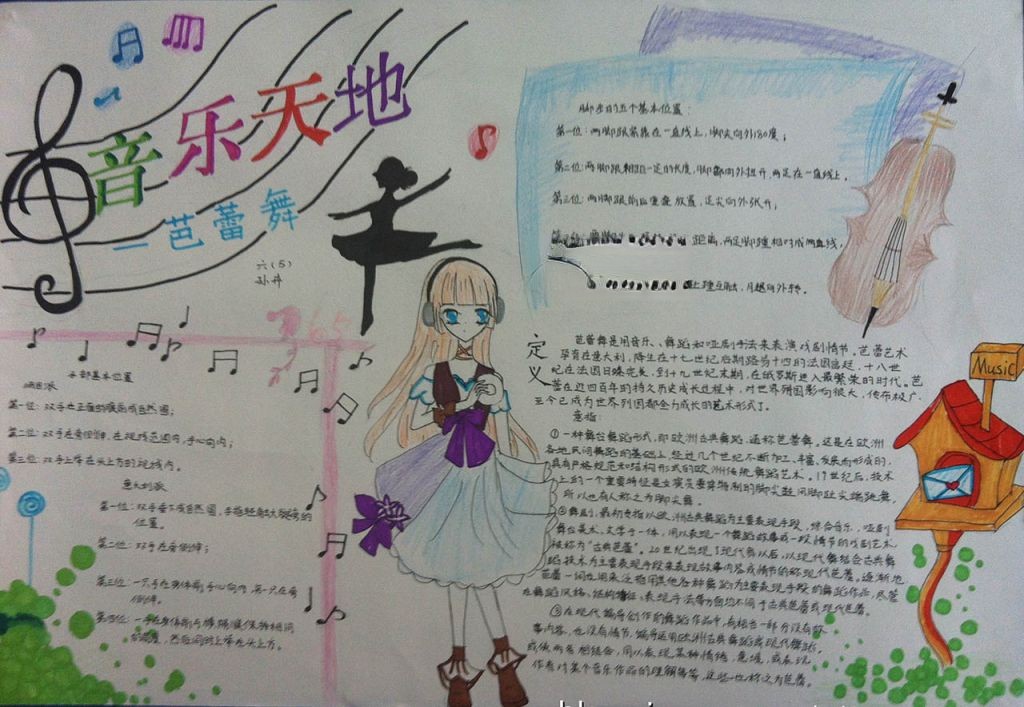 音乐天地
一芭蕾舞
六(5)
脚步的五个基本位置:
第一位:两脚跟紧靠在一直线上,脚尖向外180度;
第二位:两脚跟相距一定的长度,脚都向外扭开,两足在一直线上。
第三位:两脚跟前后重叠放置,足尖向外张开;
距离,两足脚踵相对成两直线,
上踵互触,
Music
定义
芭蕾舞是用音乐、舞蹈和哑剧手法来表演戏剧情节。芭蕾艺术
孕育在意大利,降生在十七世纪后期路易十四的法国宫廷,十八世
纪在法国日臻完美,到十九世纪末期,在俄罗斯进入最繁荣的时代。芭
蕾在近四百年的持久历史成长过程中,对世界列国影响很大,传布极广,
至今已成为世界列国都全力成长的艺术形式了。
意指:
①一种舞台舞蹈形式,即欧洲古典舞蹈,通称芭蕾舞。这是在欧洲
各地民间舞蹈的基础上,经过几个世纪不断加工、丰富、发展而形成的,
具有严格规范和结构形式的欧洲传统舞蹈艺术。19世纪后,技术
上的一个重要特征是女演员要穿特制的脚尖鞋用脚趾尖端跳舞,
所以也有人称之为脚尖舞。
②舞剧,最初专指以欧洲古典舞蹈为主要表现手段,综合音乐、哑剧
舞台美术、文学于一体,用以表现一个舞蹈故事或一段情节的戏剧艺术,
被称为"古典芭蕾"。20世纪出现了现代舞以后,以现代舞结合古典舞
蹈技术为主要表现手段来表现故事内容或情节的称现代芭蕾,逐渐地
芭蕾一词也用来泛指用其他各种舞蹈为主要表现手段的舞蹈作品,尽管
在舞蹈风格、结构特征、表现手法等方面均不同于古典芭蕾或现代芭蕾。
③在现代编导创作的舞蹈作品中,有相当一部分没有故
事内容,也没有情节,编导运用欧洲古典舞蹈或现代舞蹈,
或使两者相结合,用以表现某种情绪、意境,或表现
作者对某个音乐作品的理解等等,这些也称之为芭蕾。
手部基本位置
第一位:双手在正面的腹前成自然圆;
第二位:双手在旁侧伸,在视线范围内,手心向内;
第三位:双手上举在头上方的视线内。
意大利派
第一位:双手垂下成自然圆,手指轻触大腿旁的
位置。
第二位:双手在旁侧伸;
第三位:一只手在身体前,手心向内,另一只在旁
侧伸。